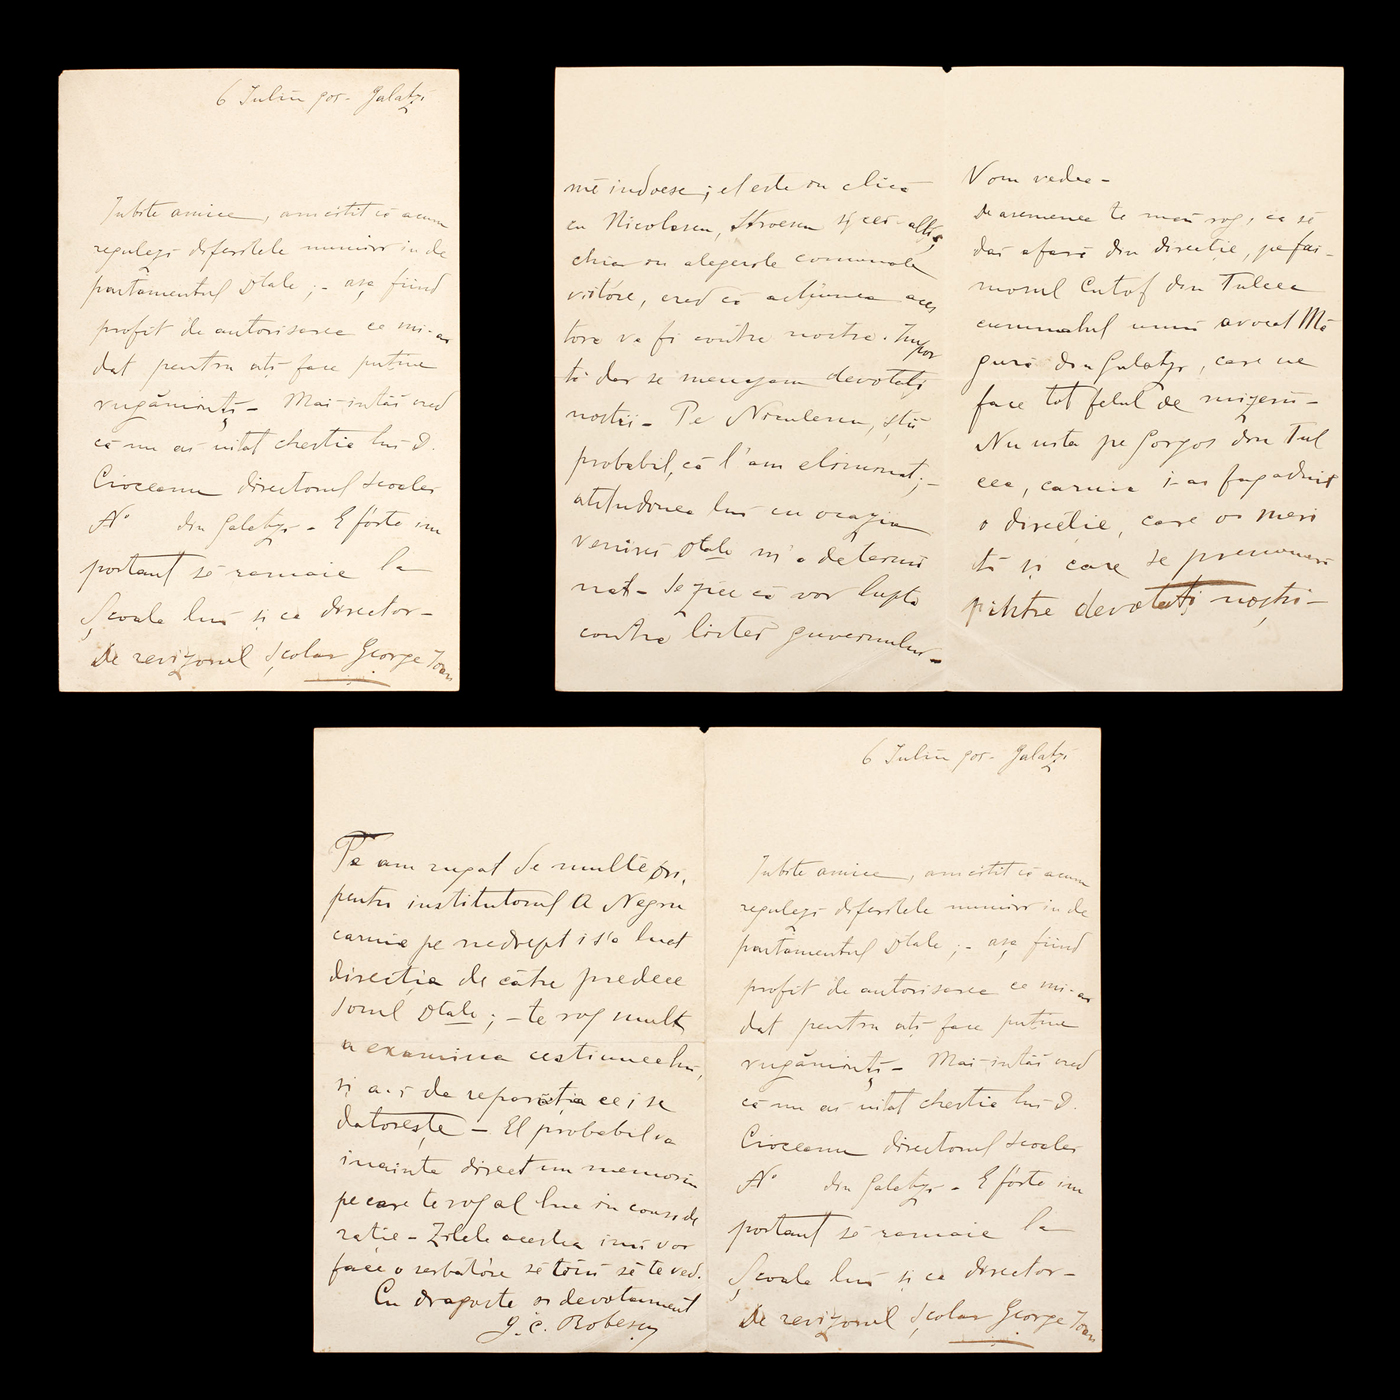 6 Iuliu 905 - Galați
Iubite amice, am citit că acum
regulezi diferitele numiri in de
partamentul Dtale ; - așa fiind
profit de autorisarea ce mi-ai
dat pentru ați face puține
rugăminți - Mai intâi cred
că nu ai uitat chestia lui D.
Cioceanu directorul scoalei
No din Galatzi - E forte im
portant să ramaie la
Școala lui și ca director -
De revizorul Școlar George Ioan
mĕ indoesc ; el este in clică
cu Nicolescu, Stroescu și cei-alți,
chiar in alegerile comunale
viitóre, cred că acțiunea aces
tora va fi contra nostra. Impor
tă dar se menajam devotați
noștri - Pe Niculescu, știi
probabil, că l'am eliminat ; -
atitudinea lui cu ocazia
venirei Dtale m'a determi
nat - Se zice că vor lupta
contra listei guvernului -
Vom vedea -
De asemenea te mai rog, ca să
dai afară din direcție, pe fai-
mosul Cutof din Tulcea
cumnatul unui avocat Mă
gură din Galatzi, care ne
face tot felul de mizerii -
Nu uita pe Gorgos din Tul
cea, caruia i-ai fagaduit
o direcție, care o meri
tă și care se prenumĕră
printre devotați noștri -
Te am rugat de multe ori,
pentru institutorul A Negru
caruia pe nedrept i s'a luat
direcția de către predece
sorul Dtale ; - te rog mult
a examina cestiunea lui,
și a-i da reparația ce i se
datorește - El probabil va
inainta direct un memoriu
pe care te rog al lua in conside
rație - Zilele acestea imi voi
face o serbatóre să vin să te ved.
Cu dragoste și devotament
G. C. Robescu
6 Iuliu 905 - Galați
Iubite amice, am citit că acum
regulezi diferitele numiri in de
partamentul Dtale ; - așa fiind
profit de autorisarea ce mi-ai
dat pentru ați face puține
rugăminți - Mai intâi cred
că nu ai uitat chestia lui D.
Cioceanu directorul scoalei
No din Galatzi - E forte im
portant să ramaie la
Școala lui și ca director -
De revizorul Școlar George Ioan